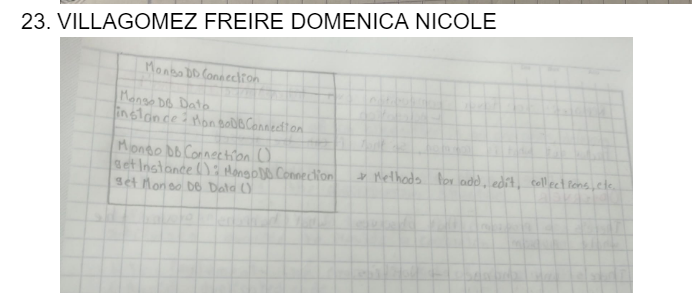 23. VILLAGOMEZ FREIRE DOMENICA NICOLE
MongoDB Connection
MongoDB Data
instance : MongoDBConnection
MongoDBConnection ()
getInstance () : MongoDBConnection
→ Methods for add, edit, collections, etc.
get MongoDB Data ()